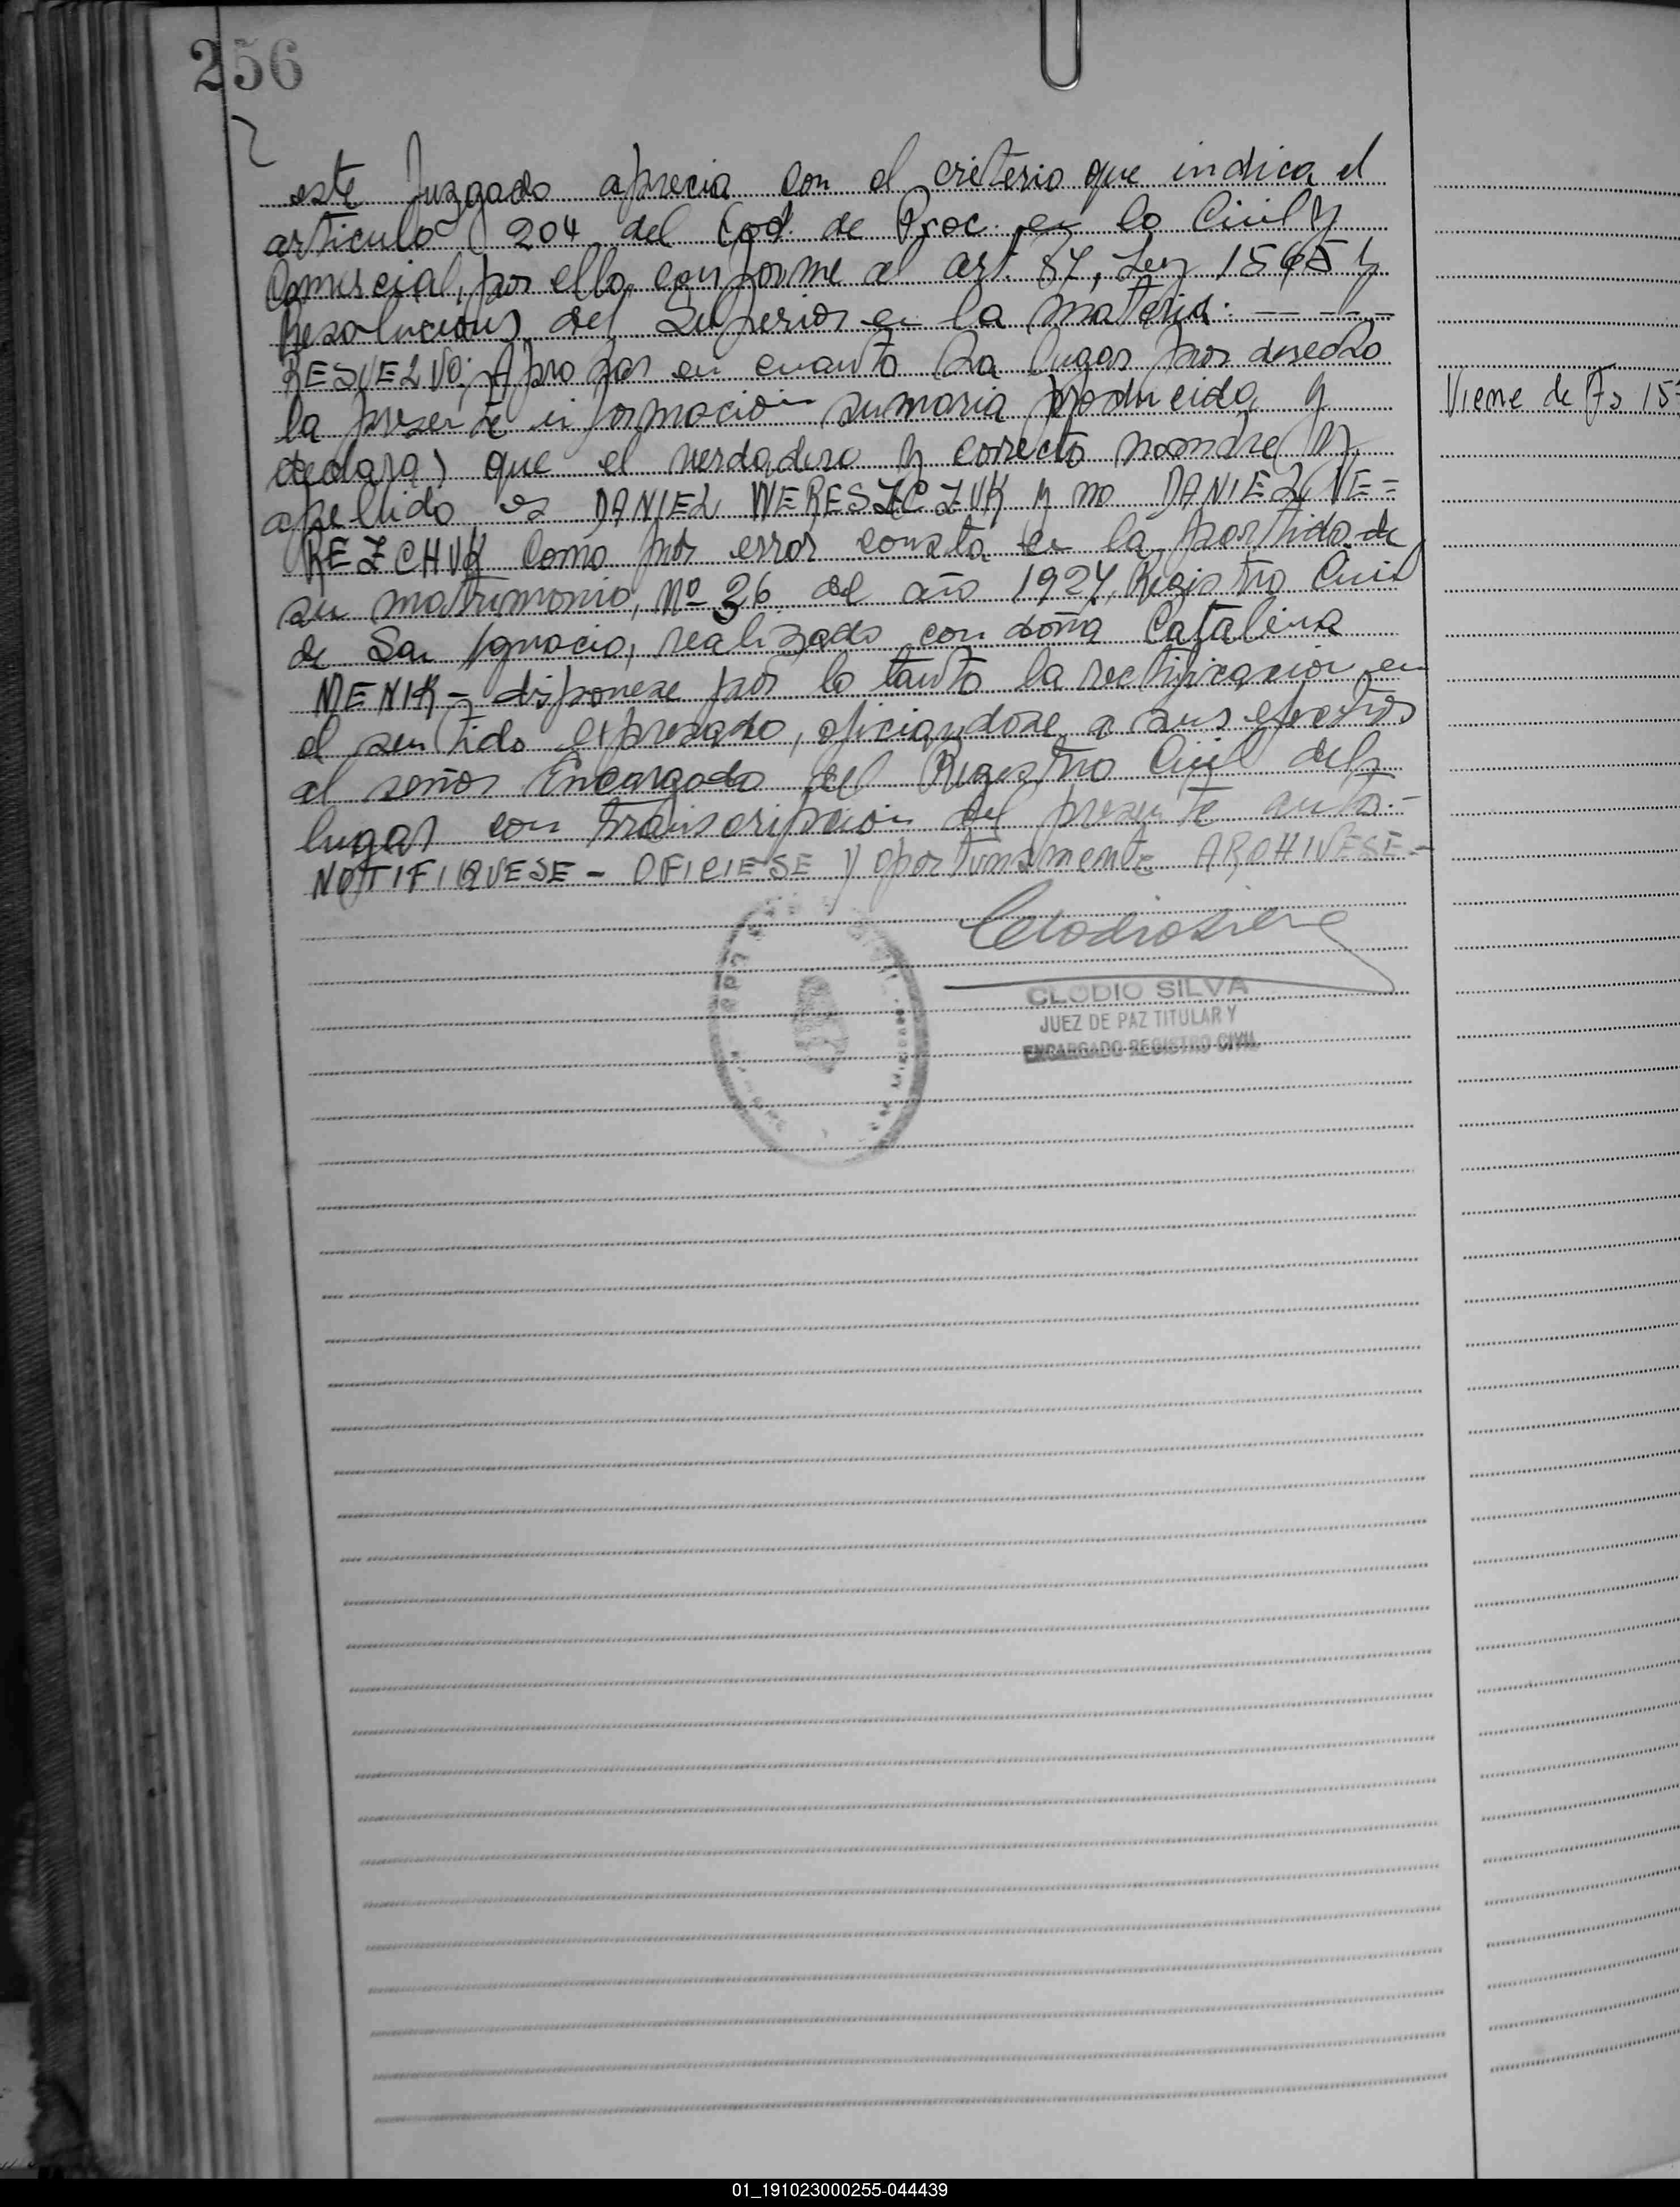 256
este Juzgado aprecia con el criterio que indica el
articulo 204 del Cod. de Proc. en lo Civil y
Comercial, por ello, conforme al art. 87, Ley 1565 y
Resoluciones del Superior en la materia: - - - -
RESUELVO: Aprobar en cuanto ha lugar por derecho
la presente informacion sumaria producida y
declarar que el verdadero y correcto nombre y
apellido es DANIEL WERESZCZUK y no DANIEL VE=
REZCHUK como por error consta en la partida de
su matrimonio, Nº 36 del año 1927, Registro Civil
de San Ignacio, realizado con doña Catalina
MENIK - disponese por lo tanto la rectificacion en
el sentido expresado, oficiandose a sus efectos
al señor Encargado del Registro Civil del
lugar con transcripcion del presente auto.-
NOTIFIQUESE - OFICIESE y oportunamente ARCHIVESE -
Viene de Fs 15
CLODIO SILVA
JUEZ DE PAZ TITULAR Y
ENCARGADO REGISTRO CIVIL
01_191023000255-044439